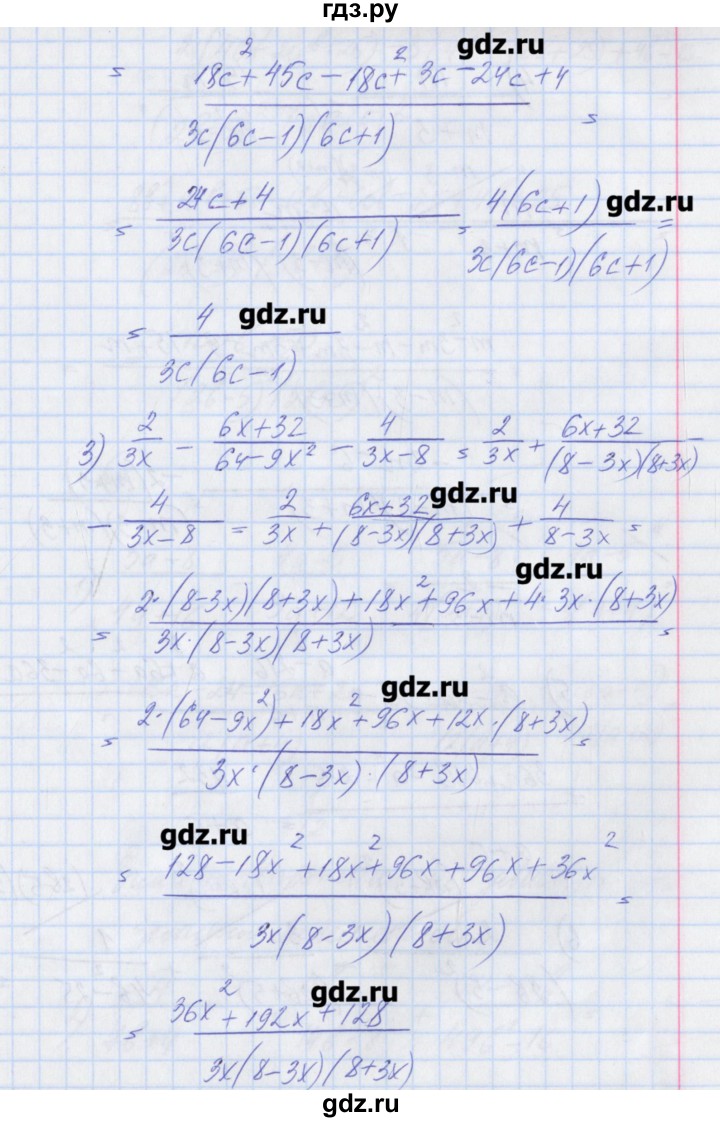 гдз.ру
gdz.ru
= (18c² + 45c - 18c² + 3c - 24c + 4) / (3c(6c-1)(6c+1)) =
= (24c + 4) / (3c(6c-1)(6c+1)) = 4(6c+1) / (3c(6c-1)(6c+1)) =
gdz.ru
= 4 / (3c(6c-1))
gdz.ru
3) 2/(3x) - (6x+32)/(64-9x²) - 4/(3x-8) = 2/(3x) + (6x+32)/((8-3x)(8+3x))
- 4/(3x-8) = 2/(3x) + (6x+32)/((8-3x)(8+3x)) + 4/(8-3x) =
gdz.ru
gdz.ru
= (2·(8-3x)(8+3x) + 18x² + 96x + 4·3x·(8+3x)) / (3x·(8-3x)(8+3x)) =
gdz.ru
= (2·(64-9x²) + 18x² + 96x + 12x·(8+3x)) / (3x·(8-3x)·(8+3x)) =
gdz.ru
= (128 - 18x² + 18x² + 96x + 96x + 36x²) / (3x(8-3x)(8+3x)) =
gdz.ru
= (36x² + 192x + 128) / (3x(8-3x)(8+3x))
gdz.ru